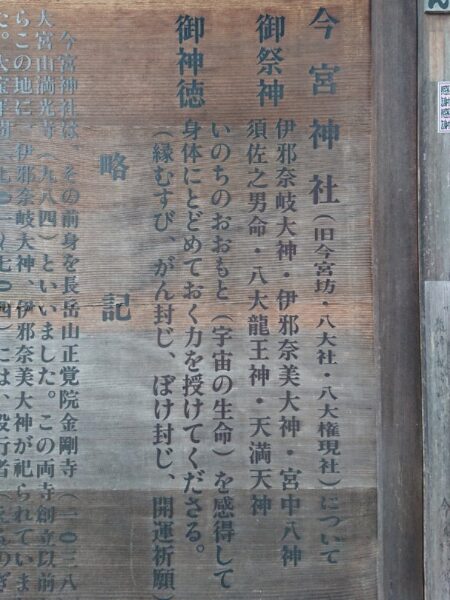 今宮神社(旧今宮坊・八大社・八大権現社)について
御祭神 伊邪奈岐大神・伊邪奈美大神・宮中八神
須佐之男命・八大龍王神・天満天神
御神徳 いのちのおおもと(宇宙の生命)を感得して
身体にとどめておく力を授けてくださる。
(縁むすび、がん封じ、ぼけ封じ、開運祈願)
略記
今宮神社は、その前身を長岳山正覚院金剛寺(一〇三八
大宮山満光寺(九八四)といいました。この両寺創立以前
らこの地に、伊邪奈岐大神、伊邪奈美大神が祀られていま
た。大宝年間(七〇一〜七〇四)には、役行者(えんのぎ